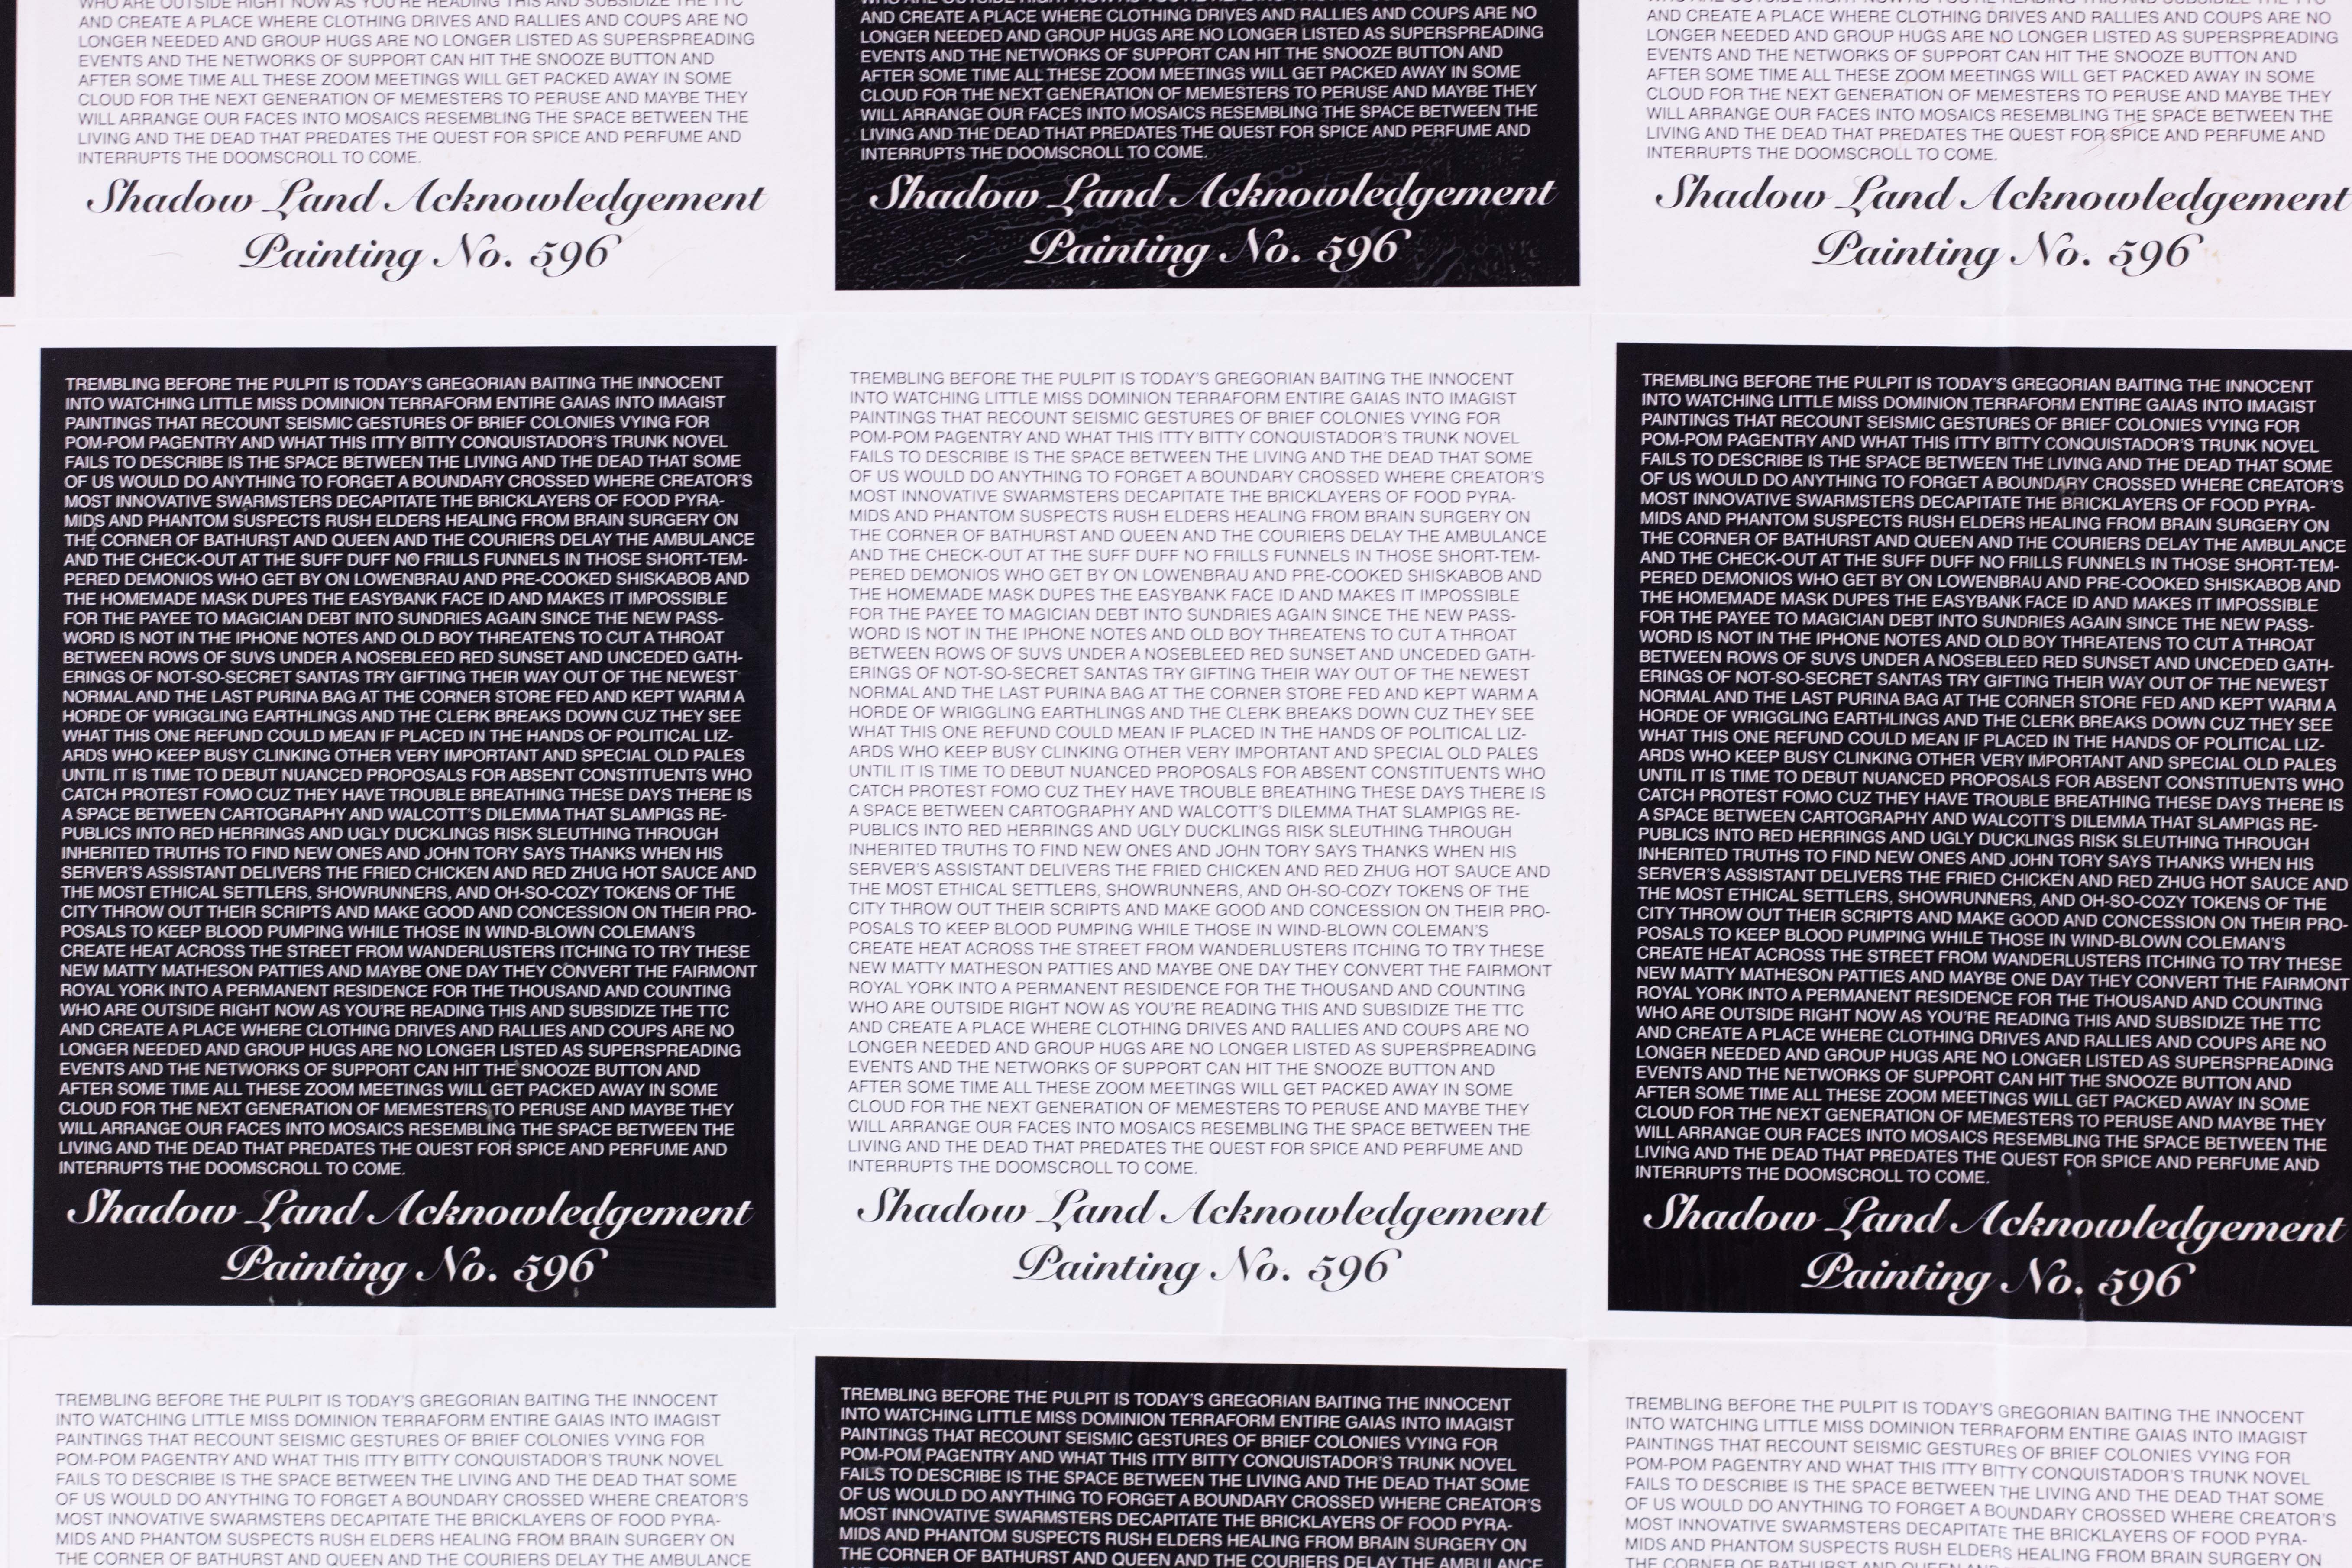 WHO ARE OUTSIDE RIGHT NOW AS YOU'RE READING THIS AND SUBSIDIZE THE TTC
AND CREATE A PLACE WHERE CLOTHING DRIVES AND RALLIES AND COUPS ARE NO
LONGER NEEDED AND GROUP HUGS ARE NO LONGER LISTED AS SUPERSPREADING
EVENTS AND THE NETWORKS OF SUPPORT CAN HIT THE SNOOZE BUTTON AND
AFTER SOME TIME ALL THESE ZOOM MEETINGS WILL GET PACKED AWAY IN SOME
CLOUD FOR THE NEXT GENERATION OF MEMESTERS TO PERUSE AND MAYBE THEY
WILL ARRANGE OUR FACES INTO MOSAICS RESEMBLING THE SPACE BETWEEN THE
LIVING AND THE DEAD THAT PREDATES THE QUEST FOR SPICE AND PERFUME AND
INTERRUPTS THE DOOMSCROLL TO COME.
Shadow Land Acknowledgement
Painting No. 596
AND CREATE A PLACE WHERE CLOTHING DRIVES AND RALLIES AND COUPS ARE NO
LONGER NEEDED AND GROUP HUGS ARE NO LONGER LISTED AS SUPERSPREADING
EVENTS AND THE NETWORKS OF SUPPORT CAN HIT THE SNOOZE BUTTON AND
AFTER SOME TIME ALL THESE ZOOM MEETINGS WILL GET PACKED AWAY IN SOME
CLOUD FOR THE NEXT GENERATION OF MEMESTERS TO PERUSE AND MAYBE THEY
WILL ARRANGE OUR FACES INTO MOSAICS RESEMBLING THE SPACE BETWEEN THE
LIVING AND THE DEAD THAT PREDATES THE QUEST FOR SPICE AND PERFUME AND
INTERRUPTS THE DOOMSCROLL TO COME.
Shadow Land Acknowledgement
Painting No. 596
WHO ARE OUTSIDE RIGHT NOW AS YOU'RE READING THIS AND SUBSIDIZE THE TTC
AND CREATE A PLACE WHERE CLOTHING DRIVES AND RALLIES AND COUPS ARE NO
LONGER NEEDED AND GROUP HUGS ARE NO LONGER LISTED AS SUPERSPREADING
EVENTS AND THE NETWORKS OF SUPPORT CAN HIT THE SNOOZE BUTTON AND
AFTER SOME TIME ALL THESE ZOOM MEETINGS WILL GET PACKED AWAY IN SOME
CLOUD FOR THE NEXT GENERATION OF MEMESTERS TO PERUSE AND MAYBE THEY
WILL ARRANGE OUR FACES INTO MOSAICS RESEMBLING THE SPACE BETWEEN THE
LIVING AND THE DEAD THAT PREDATES THE QUEST FOR SPICE AND PERFUME AND
INTERRUPTS THE DOOMSCROLL TO COME.
Shadow Land Acknowledgement
Painting No. 596
TREMBLING BEFORE THE PULPIT IS TODAY'S GREGORIAN BAITING THE INNOCENT
INTO WATCHING LITTLE MISS DOMINION TERRAFORM ENTIRE GAIAS INTO IMAGIST
PAINTINGS THAT RECOUNT SEISMIC GESTURES OF BRIEF COLONIES VYING FOR
POM-POM PAGENTRY AND WHAT THIS ITTY BITTY CONQUISTADOR'S TRUNK NOVEL
FAILS TO DESCRIBE IS THE SPACE BETWEEN THE LIVING AND THE DEAD THAT SOME
OF US WOULD DO ANYTHING TO FORGET A BOUNDARY CROSSED WHERE CREATOR'S
MOST INNOVATIVE SWARMSTERS DECAPITATE THE BRICKLAYERS OF FOOD PYRA-
MIDS AND PHANTOM SUSPECTS RUSH ELDERS HEALING FROM BRAIN SURGERY ON
THE CORNER OF BATHURST AND QUEEN AND THE COURIERS DELAY THE AMBULANCE
AND THE CHECK-OUT AT THE SUFF DUFF NO FRILLS FUNNELS IN THOSE SHORT-TEM-
PERED DEMONIOS WHO GET BY ON LOWENBRAU AND PRE-COOKED SHISKABOB AND
THE HOMEMADE MASK DUPES THE EASYBANK FACE ID AND MAKES IT IMPOSSIBLE
FOR THE PAYEE TO MAGICIAN DEBT INTO SUNDRIES AGAIN SINCE THE NEW PASS-
WORD IS NOT IN THE IPHONE NOTES AND OLD BOY THREATENS TO CUT A THROAT
BETWEEN ROWS OF SUVS UNDER A NOSEBLEED RED SUNSET AND UNCEDED GATH-
ERINGS OF NOT-SO-SECRET SANTAS TRY GIFTING THEIR WAY OUT OF THE NEWEST
NORMAL AND THE LAST PURINA BAG AT THE CORNER STORE FED AND KEPT WARM A
HORDE OF WRIGGLING EARTHLINGS AND THE CLERK BREAKS DOWN CUZ THEY SEE
WHAT THIS ONE REFUND COULD MEAN IF PLACED IN THE HANDS OF POLITICAL LIZ-
ARDS WHO KEEP BUSY CLINKING OTHER VERY IMPORTANT AND SPECIAL OLD PALES
UNTIL IT IS TIME TO DEBUT NUANCED PROPOSALS FOR ABSENT CONSTITUENTS WHO
CATCH PROTEST FOMO CUZ THEY HAVE TROUBLE BREATHING THESE DAYS THERE IS
A SPACE BETWEEN CARTOGRAPHY AND WALCOTT'S DILEMMA THAT SLAMPIGS RE-
PUBLICS INTO RED HERRINGS AND UGLY DUCKLINGS RISK SLEUTHING THROUGH
INHERITED TRUTHS TO FIND NEW ONES AND JOHN TORY SAYS THANKS WHEN HIS
SERVER'S ASSISTANT DELIVERS THE FRIED CHICKEN AND RED ZHUG HOT SAUCE AND
THE MOST ETHICAL SETTLERS, SHOWRUNNERS, AND OH-SO-COZY TOKENS OF THE
CITY THROW OUT THEIR SCRIPTS AND MAKE GOOD AND CONCESSION ON THEIR PRO-
POSALS TO KEEP BLOOD PUMPING WHILE THOSE IN WIND-BLOWN COLEMAN'S
CREATE HEAT ACROSS THE STREET FROM WANDERLUSTERS ITCHING TO TRY THESE
NEW MATTY MATHESON PATTIES AND MAYBE ONE DAY THEY CONVERT THE FAIRMONT
ROYAL YORK INTO A PERMANENT RESIDENCE FOR THE THOUSAND AND COUNTING
WHO ARE OUTSIDE RIGHT NOW AS YOU'RE READING THIS AND SUBSIDIZE THE TTC
AND CREATE A PLACE WHERE CLOTHING DRIVES AND RALLIES AND COUPS ARE NO
LONGER NEEDED AND GROUP HUGS ARE NO LONGER LISTED AS SUPERSPREADING
EVENTS AND THE NETWORKS OF SUPPORT CAN HIT THE SNOOZE BUTTON AND
AFTER SOME TIME ALL THESE ZOOM MEETINGS WILL GET PACKED AWAY IN SOME
CLOUD FOR THE NEXT GENERATION OF MEMESTERS TO PERUSE AND MAYBE THEY
WILL ARRANGE OUR FACES INTO MOSAICS RESEMBLING THE SPACE BETWEEN THE
LIVING AND THE DEAD THAT PREDATES THE QUEST FOR SPICE AND PERFUME AND
INTERRUPTS THE DOOMSCROLL TO COME.
Shadow Land Acknowledgement
Painting No. 596
TREMBLING BEFORE THE PULPIT IS TODAY'S GREGORIAN BAITING THE INNOCENT
INTO WATCHING LITTLE MISS DOMINION TERRAFORM ENTIRE GAIAS INTO IMAGIST
PAINTINGS THAT RECOUNT SEISMIC GESTURES OF BRIEF COLONIES VYING FOR
POM-POM PAGENTRY AND WHAT THIS ITTY BITTY CONQUISTADOR'S TRUNK NOVEL
FAILS TO DESCRIBE IS THE SPACE BETWEEN THE LIVING AND THE DEAD THAT SOME
OF US WOULD DO ANYTHING TO FORGET A BOUNDARY CROSSED WHERE CREATOR'S
MOST INNOVATIVE SWARMSTERS DECAPITATE THE BRICKLAYERS OF FOOD PYRA-
MIDS AND PHANTOM SUSPECTS RUSH ELDERS HEALING FROM BRAIN SURGERY ON
THE CORNER OF BATHURST AND QUEEN AND THE COURIERS DELAY THE AMBULANCE
AND THE CHECK-OUT AT THE SUFF DUFF NO FRILLS FUNNELS IN THOSE SHORT-TEM-
PERED DEMONIOS WHO GET BY ON LOWENBRAU AND PRE-COOKED SHISKABOB AND
THE HOMEMADE MASK DUPES THE EASYBANK FACE ID AND MAKES IT IMPOSSIBLE
FOR THE PAYEE TO MAGICIAN DEBT INTO SUNDRIES AGAIN SINCE THE NEW PASS-
WORD IS NOT IN THE IPHONE NOTES AND OLD BOY THREATENS TO CUT A THROAT
BETWEEN ROWS OF SUVS UNDER A NOSEBLEED RED SUNSET AND UNCEDED GATH-
ERINGS OF NOT-SO-SECRET SANTAS TRY GIFTING THEIR WAY OUT OF THE NEWEST
NORMAL AND THE LAST PURINA BAG AT THE CORNER STORE FED AND KEPT WARM A
HORDE OF WRIGGLING EARTHLINGS AND THE CLERK BREAKS DOWN CUZ THEY SEE
WHAT THIS ONE REFUND COULD MEAN IF PLACED IN THE HANDS OF POLITICAL LIZ-
ARDS WHO KEEP BUSY CLINKING OTHER VERY IMPORTANT AND SPECIAL OLD PALES
UNTIL IT IS TIME TO DEBUT NUANCED PROPOSALS FOR ABSENT CONSTITUENTS WHO
CATCH PROTEST FOMO CUZ THEY HAVE TROUBLE BREATHING THESE DAYS THERE IS
A SPACE BETWEEN CARTOGRAPHY AND WALCOTT'S DILEMMA THAT SLAMPIGS RE-
PUBLICS INTO RED HERRINGS AND UGLY DUCKLINGS RISK SLEUTHING THROUGH
INHERITED TRUTHS TO FIND NEW ONES AND JOHN TORY SAYS THANKS WHEN HIS
SERVER'S ASSISTANT DELIVERS THE FRIED CHICKEN AND RED ZHUG HOT SAUCE AND
THE MOST ETHICAL SETTLERS, SHOWRUNNERS, AND OH-SO-COZY TOKENS OF THE
CITY THROW OUT THEIR SCRIPTS AND MAKE GOOD AND CONCESSION ON THEIR PRO-
POSALS TO KEEP BLOOD PUMPING WHILE THOSE IN WIND-BLOWN COLEMAN'S
CREATE HEAT ACROSS THE STREET FROM WANDERLUSTERS ITCHING TO TRY THESE
NEW MATTY MATHESON PATTIES AND MAYBE ONE DAY THEY CONVERT THE FAIRMONT
ROYAL YORK INTO A PERMANENT RESIDENCE FOR THE THOUSAND AND COUNTING
WHO ARE OUTSIDE RIGHT NOW AS YOU'RE READING THIS AND SUBSIDIZE THE TTC
AND CREATE A PLACE WHERE CLOTHING DRIVES AND RALLIES AND COUPS ARE NO
LONGER NEEDED AND GROUP HUGS ARE NO LONGER LISTED AS SUPERSPREADING
EVENTS AND THE NETWORKS OF SUPPORT CAN HIT THE SNOOZE BUTTON AND
AFTER SOME TIME ALL THESE ZOOM MEETINGS WILL GET PACKED AWAY IN SOME
CLOUD FOR THE NEXT GENERATION OF MEMESTERS TO PERUSE AND MAYBE THEY
WILL ARRANGE OUR FACES INTO MOSAICS RESEMBLING THE SPACE BETWEEN THE
LIVING AND THE DEAD THAT PREDATES THE QUEST FOR SPICE AND PERFUME AND
INTERRUPTS THE DOOMSCROLL TO COME.
Shadow Land Acknowledgement
Painting No. 596
TREMBLING BEFORE THE PULPIT IS TODAY'S GREGORIAN BAITING THE INNOCENT
INTO WATCHING LITTLE MISS DOMINION TERRAFORM ENTIRE GAIAS INTO IMAGIST
PAINTINGS THAT RECOUNT SEISMIC GESTURES OF BRIEF COLONIES VYING FOR
POM-POM PAGENTRY AND WHAT THIS ITTY BITTY CONQUISTADOR'S TRUNK NOVEL
FAILS TO DESCRIBE IS THE SPACE BETWEEN THE LIVING AND THE DEAD THAT SOME
OF US WOULD DO ANYTHING TO FORGET A BOUNDARY CROSSED WHERE CREATOR'S
MOST INNOVATIVE SWARMSTERS DECAPITATE THE BRICKLAYERS OF FOOD PYRA-
MIDS AND PHANTOM SUSPECTS RUSH ELDERS HEALING FROM BRAIN SURGERY ON
THE CORNER OF BATHURST AND QUEEN AND THE COURIERS DELAY THE AMBULANCE
AND THE CHECK-OUT AT THE SUFF DUFF NO FRILLS FUNNELS IN THOSE SHORT-TEM-
PERED DEMONIOS WHO GET BY ON LOWENBRAU AND PRE-COOKED SHISKABOB AND
THE HOMEMADE MASK DUPES THE EASYBANK FACE ID AND MAKES IT IMPOSSIBLE
FOR THE PAYEE TO MAGICIAN DEBT INTO SUNDRIES AGAIN SINCE THE NEW PASS-
WORD IS NOT IN THE IPHONE NOTES AND OLD BOY THREATENS TO CUT A THROAT
BETWEEN ROWS OF SUVS UNDER A NOSEBLEED RED SUNSET AND UNCEDED GATH-
ERINGS OF NOT-SO-SECRET SANTAS TRY GIFTING THEIR WAY OUT OF THE NEWEST
NORMAL AND THE LAST PURINA BAG AT THE CORNER STORE FED AND KEPT WARM A
HORDE OF WRIGGLING EARTHLINGS AND THE CLERK BREAKS DOWN CUZ THEY SEE
WHAT THIS ONE REFUND COULD MEAN IF PLACED IN THE HANDS OF POLITICAL LIZ-
ARDS WHO KEEP BUSY CLINKING OTHER VERY IMPORTANT AND SPECIAL OLD PALES
UNTIL IT IS TIME TO DEBUT NUANCED PROPOSALS FOR ABSENT CONSTITUENTS WHO
CATCH PROTEST FOMO CUZ THEY HAVE TROUBLE BREATHING THESE DAYS THERE IS
A SPACE BETWEEN CARTOGRAPHY AND WALCOTT'S DILEMMA THAT SLAMPIGS RE-
PUBLICS INTO RED HERRINGS AND UGLY DUCKLINGS RISK SLEUTHING THROUGH
INHERITED TRUTHS TO FIND NEW ONES AND JOHN TORY SAYS THANKS WHEN HIS
SERVER'S ASSISTANT DELIVERS THE FRIED CHICKEN AND RED ZHUG HOT SAUCE AND
THE MOST ETHICAL SETTLERS, SHOWRUNNERS, AND OH-SO-COZY TOKENS OF THE
CITY THROW OUT THEIR SCRIPTS AND MAKE GOOD AND CONCESSION ON THEIR PRO-
POSALS TO KEEP BLOOD PUMPING WHILE THOSE IN WIND-BLOWN COLEMAN'S
CREATE HEAT ACROSS THE STREET FROM WANDERLUSTERS ITCHING TO TRY THESE
NEW MATTY MATHESON PATTIES AND MAYBE ONE DAY THEY CONVERT THE FAIRMONT
ROYAL YORK INTO A PERMANENT RESIDENCE FOR THE THOUSAND AND COUNTING
WHO ARE OUTSIDE RIGHT NOW AS YOU'RE READING THIS AND SUBSIDIZE THE TTC
AND CREATE A PLACE WHERE CLOTHING DRIVES AND RALLIES AND COUPS ARE NO
LONGER NEEDED AND GROUP HUGS ARE NO LONGER LISTED AS SUPERSPREADING
EVENTS AND THE NETWORKS OF SUPPORT CAN HIT THE SNOOZE BUTTON AND
AFTER SOME TIME ALL THESE ZOOM MEETINGS WILL GET PACKED AWAY IN SOME
CLOUD FOR THE NEXT GENERATION OF MEMESTERS TO PERUSE AND MAYBE THEY
WILL ARRANGE OUR FACES INTO MOSAICS RESEMBLING THE SPACE BETWEEN THE
LIVING AND THE DEAD THAT PREDATES THE QUEST FOR SPICE AND PERFUME AND
INTERRUPTS THE DOOMSCROLL TO COME.
Shadow Land Acknowledgement
Painting No. 596
TREMBLING BEFORE THE PULPIT IS TODAY'S GREGORIAN BAITING THE INNOCENT
INTO WATCHING LITTLE MISS DOMINION TERRAFORM ENTIRE GAIAS INTO IMAGIST
PAINTINGS THAT RECOUNT SEISMIC GESTURES OF BRIEF COLONIES VYING FOR
POM-POM PAGENTRY AND WHAT THIS ITTY BITTY CONQUISTADOR'S TRUNK NOVEL
FAILS TO DESCRIBE IS THE SPACE BETWEEN THE LIVING AND THE DEAD THAT SOME
OF US WOULD DO ANYTHING TO FORGET A BOUNDARY CROSSED WHERE CREATOR'S
MOST INNOVATIVE SWARMSTERS DECAPITATE THE BRICKLAYERS OF FOOD PYRA-
MIDS AND PHANTOM SUSPECTS RUSH ELDERS HEALING FROM BRAIN SURGERY ON
THE CORNER OF BATHURST AND QUEEN AND THE COURIERS DELAY THE AMBULANCE
TREMBLING BEFORE THE PULPIT IS TODAY'S GREGORIAN BAITING THE INNOCENT
INTO WATCHING LITTLE MISS DOMINION TERRAFORM ENTIRE GAIAS INTO IMAGIST
PAINTINGS THAT RECOUNT SEISMIC GESTURES OF BRIEF COLONIES VYING FOR
POM-POM PAGENTRY AND WHAT THIS ITTY BITTY CONQUISTADOR'S TRUNK NOVEL
FAILS TO DESCRIBE IS THE SPACE BETWEEN THE LIVING AND THE DEAD THAT SOME
OF US WOULD DO ANYTHING TO FORGET A BOUNDARY CROSSED WHERE CREATOR'S
MOST INNOVATIVE SWARMSTERS DECAPITATE THE BRICKLAYERS OF FOOD PYRA-
MIDS AND PHANTOM SUSPECTS RUSH ELDERS HEALING FROM BRAIN SURGERY ON
THE CORNER OF BATHURST AND QUEEN AND THE COURIERS DELAY THE AMBULANCE
TREMBLING BEFORE THE PULPIT IS TODAY'S GREGORIAN BAITING THE INNOCENT
INTO WATCHING LITTLE MISS DOMINION TERRAFORM ENTIRE GAIAS INTO IMAGIST
PAINTINGS THAT RECOUNT SEISMIC GESTURES OF BRIEF COLONIES VYING FOR
POM-POM PAGENTRY AND WHAT THIS ITTY BITTY CONQUISTADOR'S TRUNK NOVEL
FAILS TO DESCRIBE IS THE SPACE BETWEEN THE LIVING AND THE DEAD THAT SOME
OF US WOULD DO ANYTHING TO FORGET A BOUNDARY CROSSED WHERE CREATOR'S
MOST INNOVATIVE SWARMSTERS DECAPITATE THE BRICKLAYERS OF FOOD PYRA-
MIDS AND PHANTOM SUSPECTS RUSH ELDERS HEALING FROM BRAIN SURGERY ON
THE CORNER OF BATHURST AND QUEEN